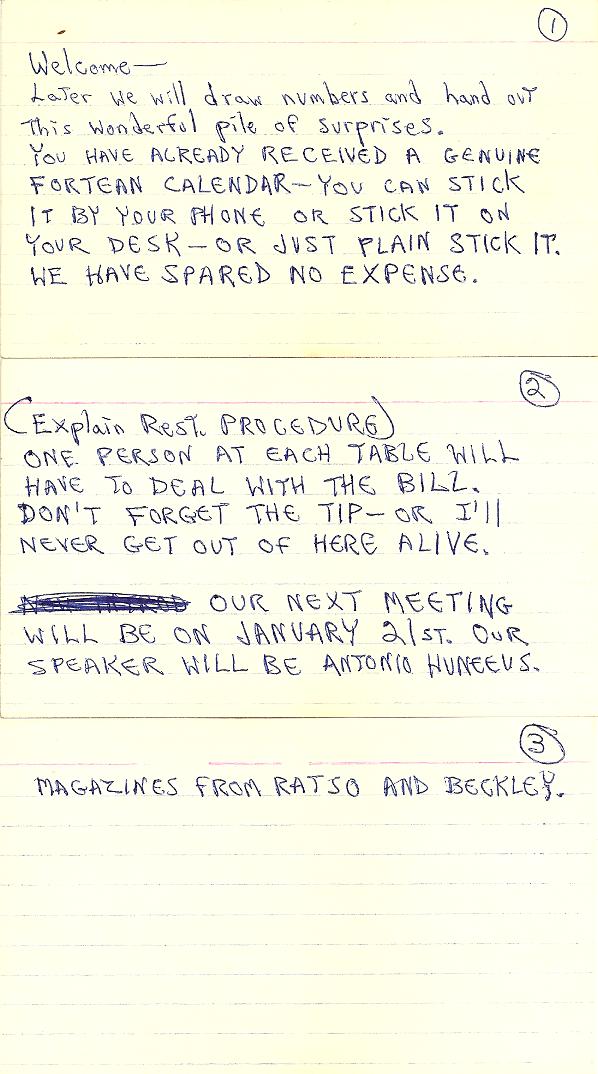 1
Welcome—
Later we will draw numbers and hand out
this wonderful pile of surprises.
YOU HAVE ALREADY RECEIVED A GENUINE
FORTEAN CALENDAR—YOU CAN STICK
IT BY YOUR PHONE OR STICK IT ON
YOUR DESK—OR JUST PLAIN STICK IT.
WE HAVE SPARED NO EXPENSE.
2
(Explain Rest. PROCEDURE)
ONE PERSON AT EACH TABLE WILL
HAVE TO DEAL WITH THE BILL.
DON'T FORGET THE TIP—OR I'll
NEVER GET OUT OF HERE ALIVE.
OUR NEXT MEETING
WILL BE ON JANUARY 21ST. OUR
SPEAKER WILL BE ANTONIO HUNEEUS.
3
MAGAZINES FROM RATSO AND BECKLEY.